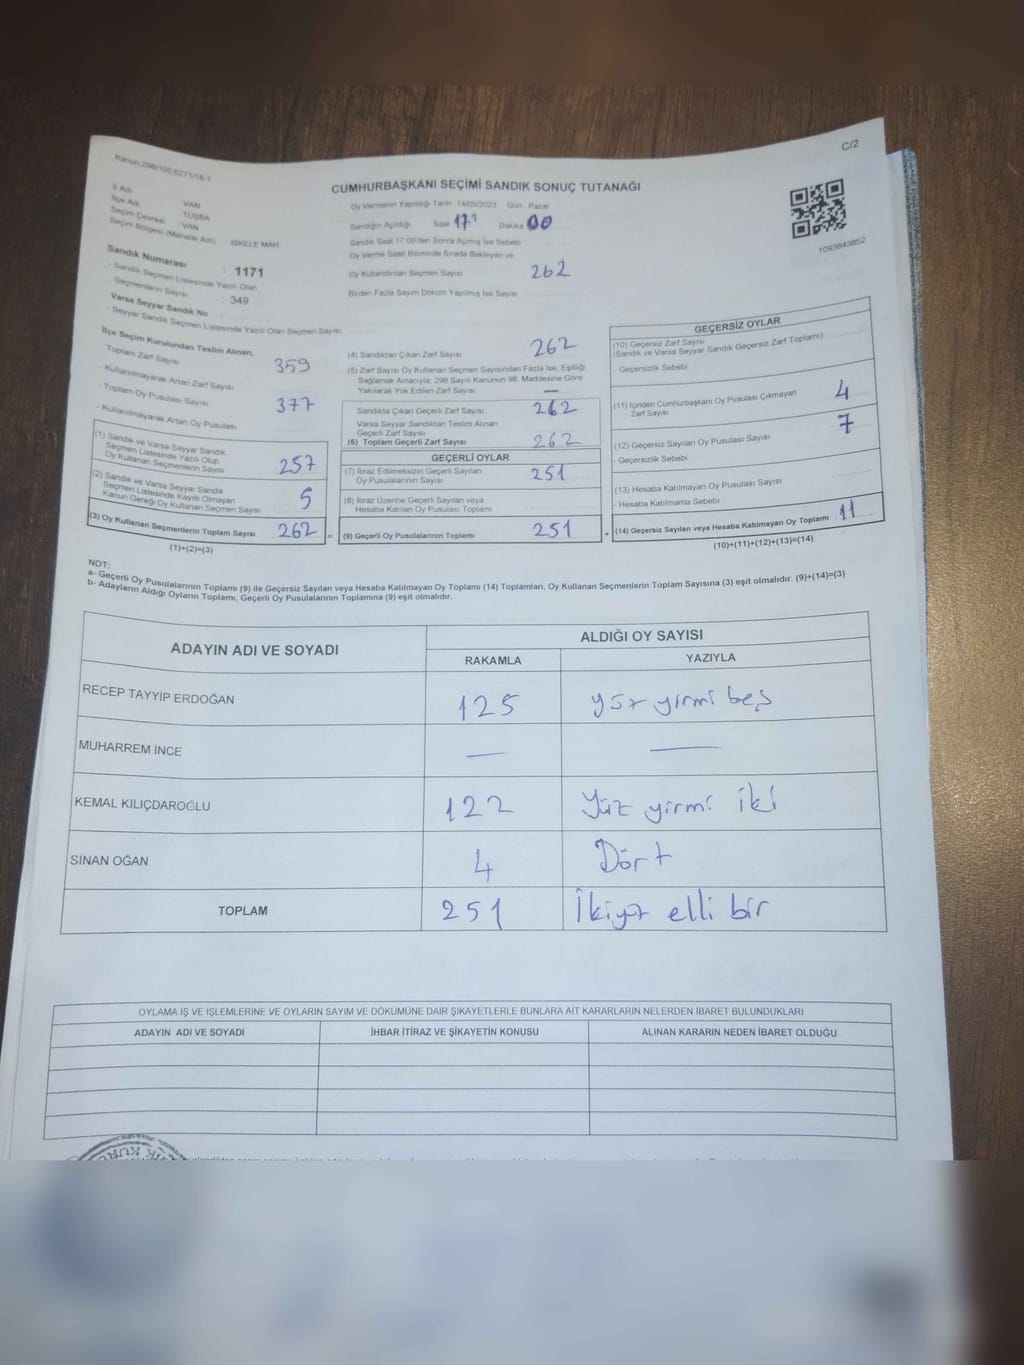 Kanun:298/105,6271/16-1
C/2
CUMHURBAŞKANI SEÇİMİ SANDIK SONUÇ TUTANAĞI
İl Adı : VAN
İlçe Adı : TUŞBA
Seçim Çevresi : VAN
Seçim Bölgesi (Mahalle Adı) : İSKELE MAH
Sandık Numarası : 1171
- Sandık Seçmen Listesinde Yazılı Olan
Seçmenlerin Sayısı : 349
Varsa Seyyar Sandık No :
- Seyyar Sandık Seçmen Listesinde Yazılı Olan Seçmen Sayısı
Oy Vermenin Yapıldığı Tarih :14/05/2023 Gün : Pazar
Sandığın Açıldığı Saat 17 Dakika 00
Sandık Saat 17.00'den Sonra Açılmış İse Sebebi
Oy Verme Saati Bitiminde Sırada Bekleyen ve
Oy Kullandırılan Seçmen Sayısı 262
Birden Fazla Sayım Döküm Yapılmış İse Sayısı
1093643852
İlçe Seçim Kurulundan Teslim Alınan;
- Toplam Zarf Sayısı 359
- Kullanılmayarak Artan Zarf Sayısı
- Toplam Oy Pusulası Sayısı 377
- Kullanılmayarak Artan Oy Pusulası
(1) Sandık ve Varsa Seyyar Sandık
Seçmen Listesinde Yazılı Olup
Oy Kullanan Seçmenlerin Sayısı 257
(2) Sandık ve Varsa Seyyar Sandık
Seçmen Listesinde Kayıtlı Olmayan
Kanun Gereği Oy Kullanan Seçmen Sayısı 5
(3) Oy Kullanan Seçmenlerin Toplam Sayısı 262 =
(1)+(2)=(3)
(4) Sandıktan Çıkan Zarf Sayısı 262
(5) Zarf Sayısı Oy Kullanan Seçmen Sayısından Fazla İse, Eşitliği
Sağlamak Amacıyla; 298 Sayılı Kanunun 98. Maddesine Göre
Yakılarak Yok Edilen Zarf Sayısı —
Sandıkta Çıkan Geçerli Zarf Sayısı 262
Varsa Seyyar Sandıktan Teslim Alınan
Geçerli Zarf Sayısı
(6) Toplam Geçerli Zarf Sayısı 262
GEÇERLİ OYLAR
(7) İtiraz Edilmeksizin Geçerli Sayılan
Oy Pusulalarının Sayısı 251
(8) İtiraz Üzerine Geçerli Sayılan veya
Hesaba Katılan Oy Pusulası Toplamı
(9) Geçerli Oy Pusulalarının Toplamı 251 +
GEÇERSİZ OYLAR
(10) Geçersiz Zarf Sayısı
(Sandık ve Varsa Seyyar Sandık Geçersiz Zarf Toplamı)
- Geçersizlik Sebebi
(11) İçinden Cumhurbaşkanı Oy Pusulası Çıkmayan
Zarf Sayısı 4
(12) Geçersiz Sayılan Oy Pusulası Sayısı 7
- Geçersizlik Sebebi
(13) Hesaba Katılmayan Oy Pusulası Sayısı
- Hesaba Katılmama Sebebi
(14) Geçersiz Sayılan veya Hesaba Katılmayan Oy Toplamı 11
(10)+(11)+(12)+(13)=(14)
NOT:
a- Geçerli Oy Pusulalarının Toplamı (9) ile Geçersiz Sayılan veya Hesaba Katılmayan Oy Toplamı (14) Toplamları, Oy Kullanan Seçmenlerin Toplam Sayısına (3) eşit olmalıdır. (9)+(14)=(3)
b- Adayların Aldığı Oyların Toplamı, Geçerli Oy Pusulalarının Toplamına (9) eşit olmalıdır.
ADAYIN ADI VE SOYADI
ALDIĞI OY SAYISI
RAKAMLA YAZIYLA
RECEP TAYYİP ERDOĞAN 125 yüz yirmi beş
MUHARREM İNCE — —
KEMAL KILIÇDAROĞLU 122 Yüz yirmi iki
SİNAN OĞAN 4 Dört
TOPLAM 251 İkiyüz elli bir
OYLAMA İŞ VE İŞLEMLERİNE VE OYLARIN SAYIM VE DÖKÜMÜNE DAİR ŞİKAYETLERLE BUNLARA AİT KARARLARIN NELERDEN İBARET BULUNDUKLARI
ADAYIN ADI VE SOYADI İHBAR İTİRAZ VE ŞİKAYETİN KONUSU ALINAN KARARIN NEDEN İBARET OLDUĞU